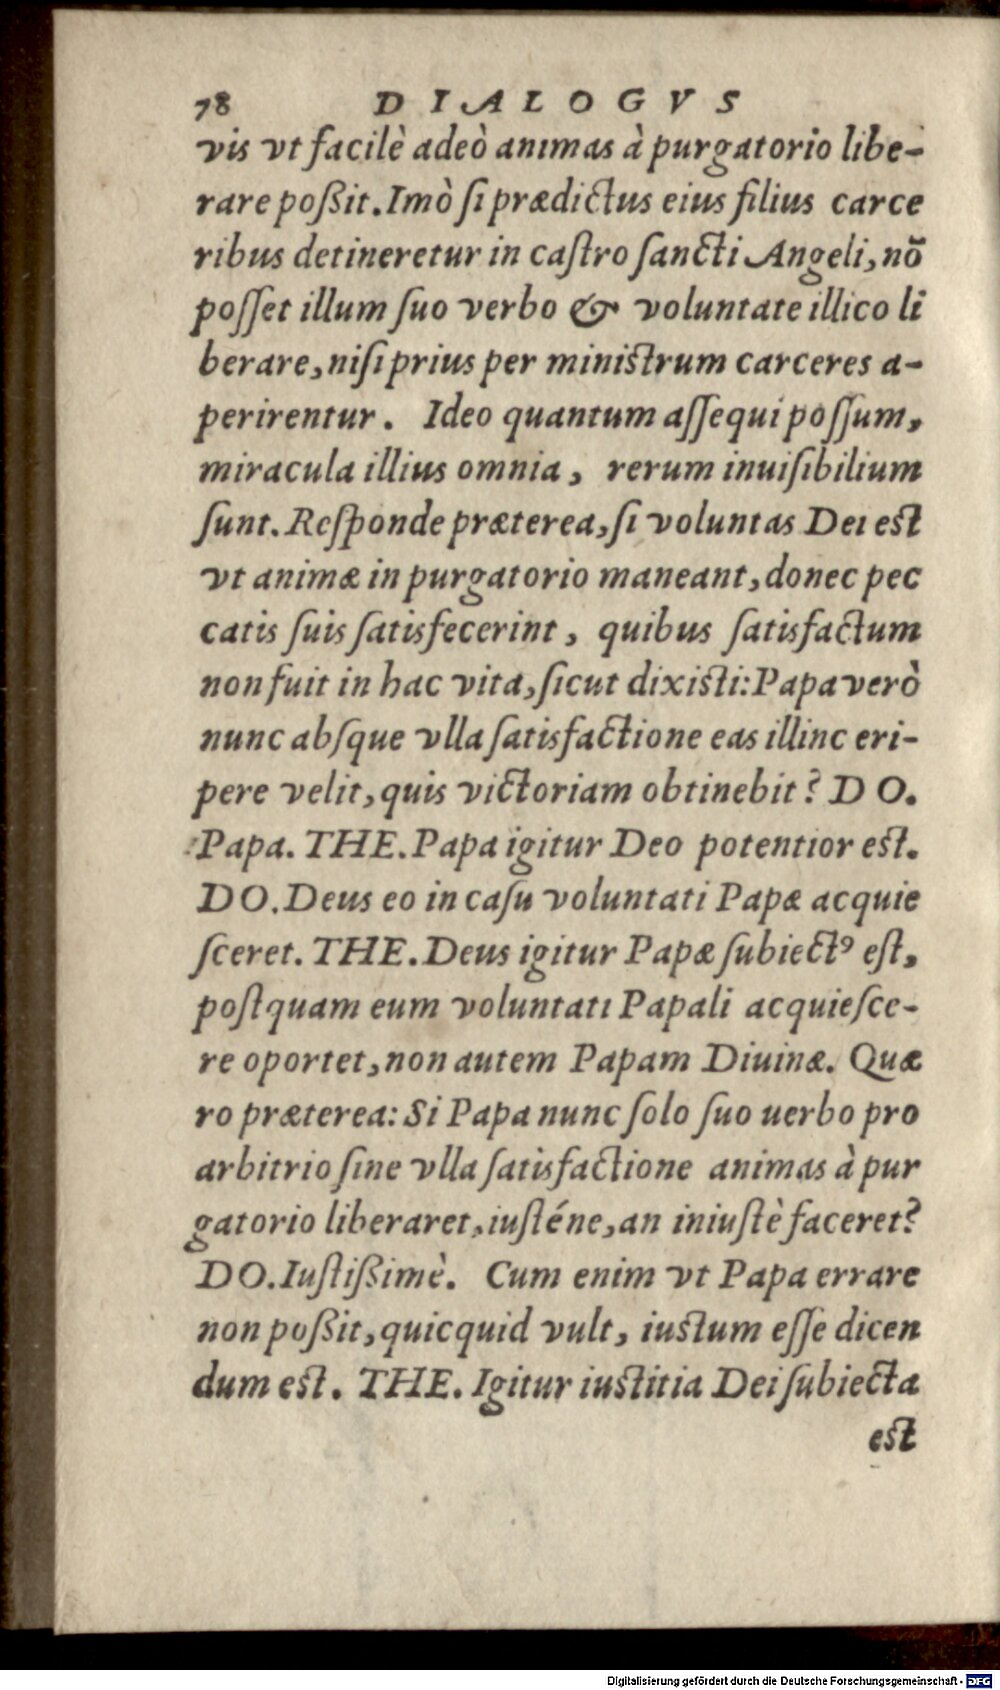 78 DIALOGVS
vis vt facilè adeò animas à purgatorio libe-
rare poßit. Imò ſi prædictus eius filius carce
ribus detineretur in caſtro ſancti Angeli, nõ
poſſet illum ſuo verbo & voluntate illico li
berare, niſi prius per miniſtrum carceres a-
perirentur. Ideo quantum aſſequi poſſum,
miracula illius omnia, rerum inuiſibilium
ſunt. Reſponde præterea, ſi voluntas Dei eſt
vt animæ in purgatorio maneant, donec pec
catis ſuis ſatisfecerint, quibus ſatisfactum
non fuit in hac vita, ſicut dixiſti: Papa verò
nunc abſque vlla ſatisfactione eas illinc eri-
pere velit, quis victoriam obtinebit? DO.
Papa. THE. Papa igitur Deo potentior eſt.
DO. Deus eo in caſu voluntati Papæ acquie
ſceret. THE. Deus igitur Papæ ſubiectꝰ eſt,
poſtquam eum voluntati Papali acquieſce-
re oportet, non autem Papam Diuinæ. Quæ
ro præterea: Si Papa nunc ſolo ſuo uerbo pro
arbitrio ſine vlla ſatisfactione animas à pur
gatorio liberaret, iuſténe, an iniuſtè faceret?
DO. Iuſtißimè. Cum enim vt Papa errare
non poßit, quicquid vult, iuſtum eſſe dicen
dum eſt. THE. Igitur iuſtitia Dei ſubiecta
eſt
Digitalisierung gefördert durch die Deutsche Forschungsgemeinschaft - DFG